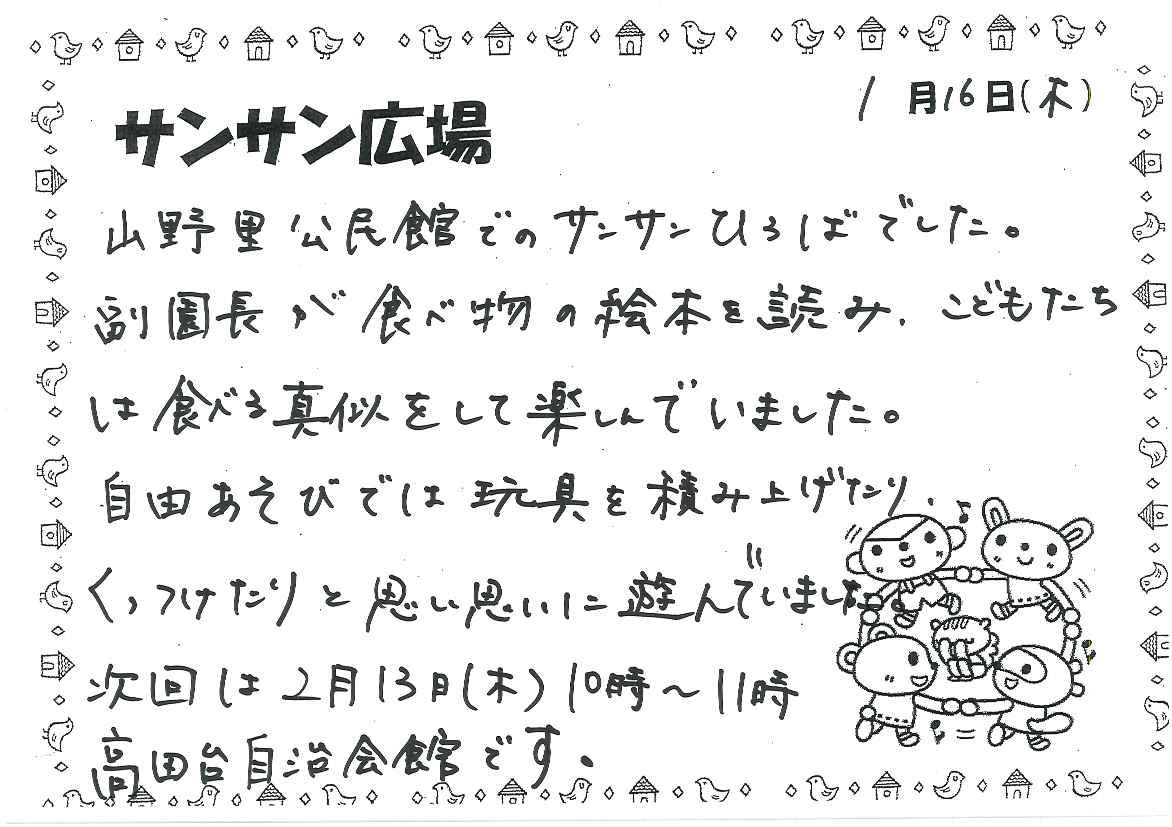 1月16日(木)
サンサン広場
山野里公民館でのサンサンひろばでした。
副園長が食べ物の絵本を読み、こどもたち
は食べる真似をして楽しんでいました。
自由あそびでは玩具を積み上げたり、
くっつけたりと思い思いに遊んでいました。
次回は2月13日(木)10時~11時
高田台自治会館です。